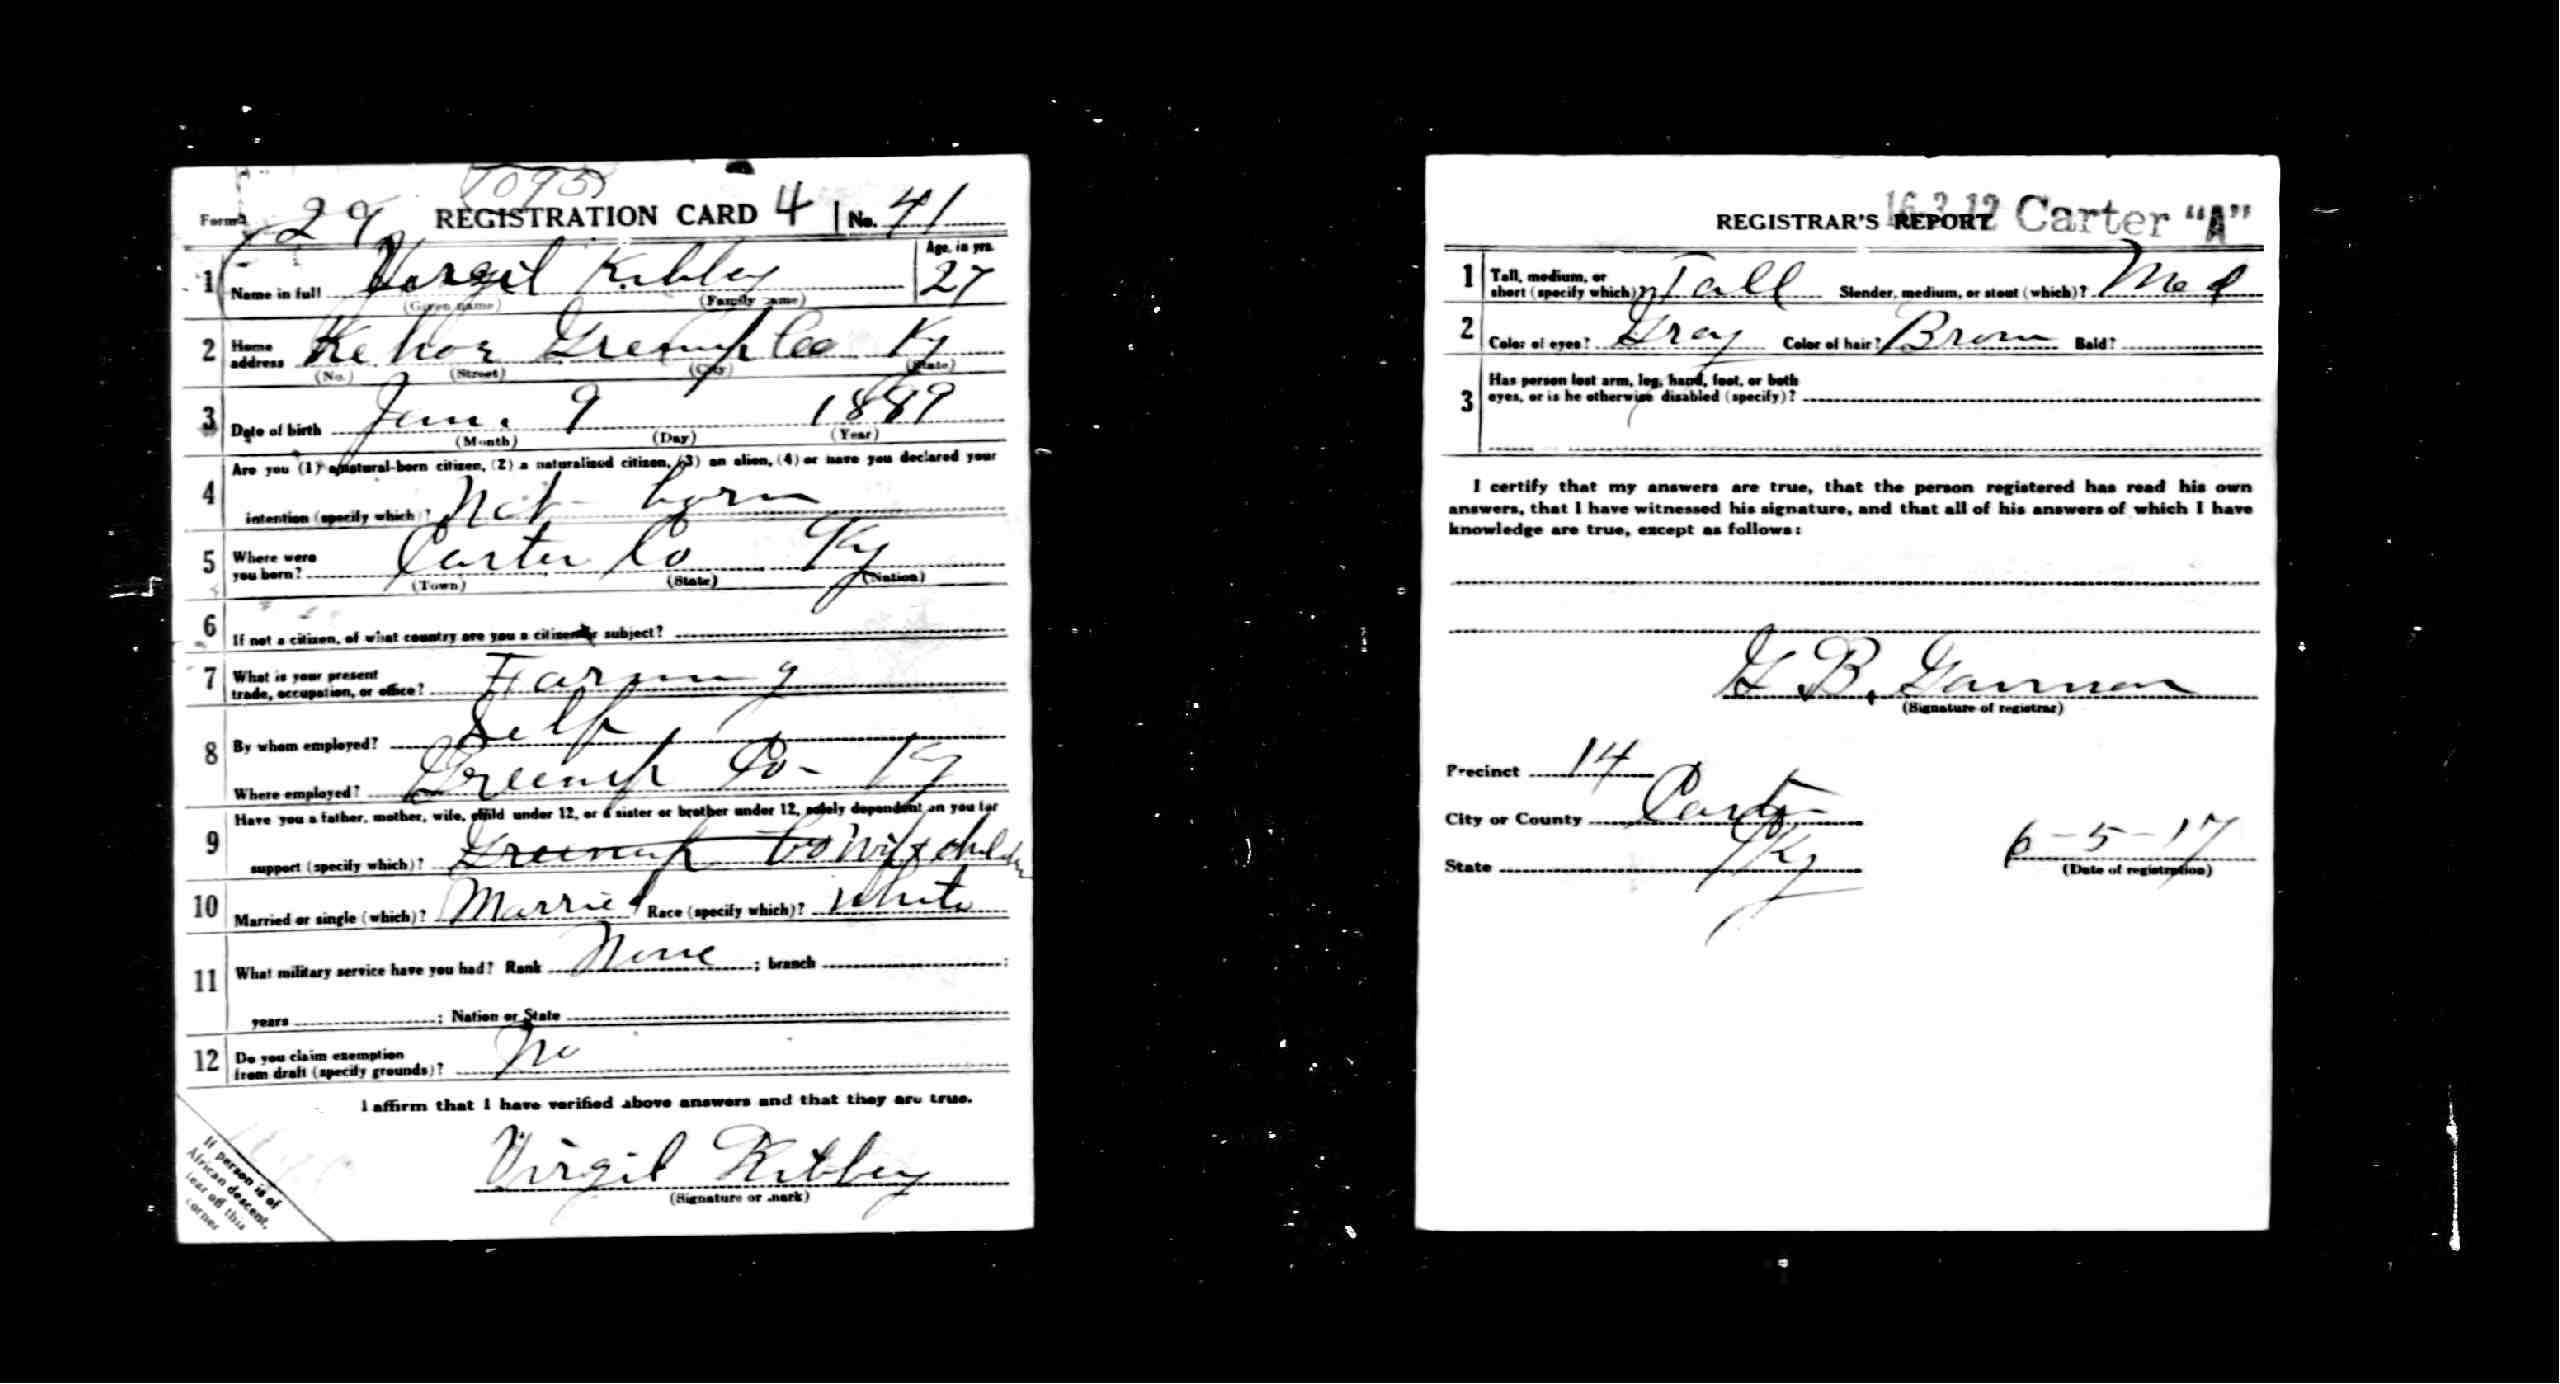 Form 1 29 REGISTRATION CARD 4 No. 41
1 Name in full Virgil Kibbey Age, in yrs. 27
(Given name) (Family name)
2 Home address Kehoe Greenup Co Ky
(No.) (Street) (City) (State)
3 Date of birth Jan. 9 1889
(Month) (Day) (Year)
4 Are you (1) a natural-born citizen, (2) a naturalized citizen, (3) an alien, (4) or have you declared your
intention (specify which)? Nat born
5 Where were you born? Carter Co Ky
(Town) (State) (Nation)
6 If not a citizen, of what country are you a citizen or subject?
7 What is your present
trade, occupation, or office? Farming
8 By whom employed? Self
Where employed? Greenup Co - Ky
9 Have you a father, mother, wife, child under 12, or a sister or brother under 12, solely dependent on you for
support (specify which)? Greenup Co Wife &
10 Married or single (which)? Married Race (specify which)? White
11 What military service have you had? Rank None ; branch ;
years ; Nation or State
12 Do you claim exemption
from draft (specify grounds)? No
I affirm that I have verified above answers and that they are true.
Virgil Kibbey
(Signature or mark)
If person is of
African descent,
tear off this
corner
REGISTRAR'S REPORT Carter "A"
1 Tall, medium, or
short (specify which)? Tall Slender, medium, or stout (which)? Med
2 Color of eyes? Gray Color of hair? Brown Bald?
3 Has person lost arm, leg, hand, foot, or both
eyes, or is he otherwise disabled (specify)?
I certify that my answers are true, that the person registered has read his own
answers, that I have witnessed his signature, and that all of his answers of which I have
knowledge are true, except as follows:
G. B. Gammon
(Signature of registrar)
Precinct 14
City or County Carter
State Ky 6-5-17
(Date of registration)